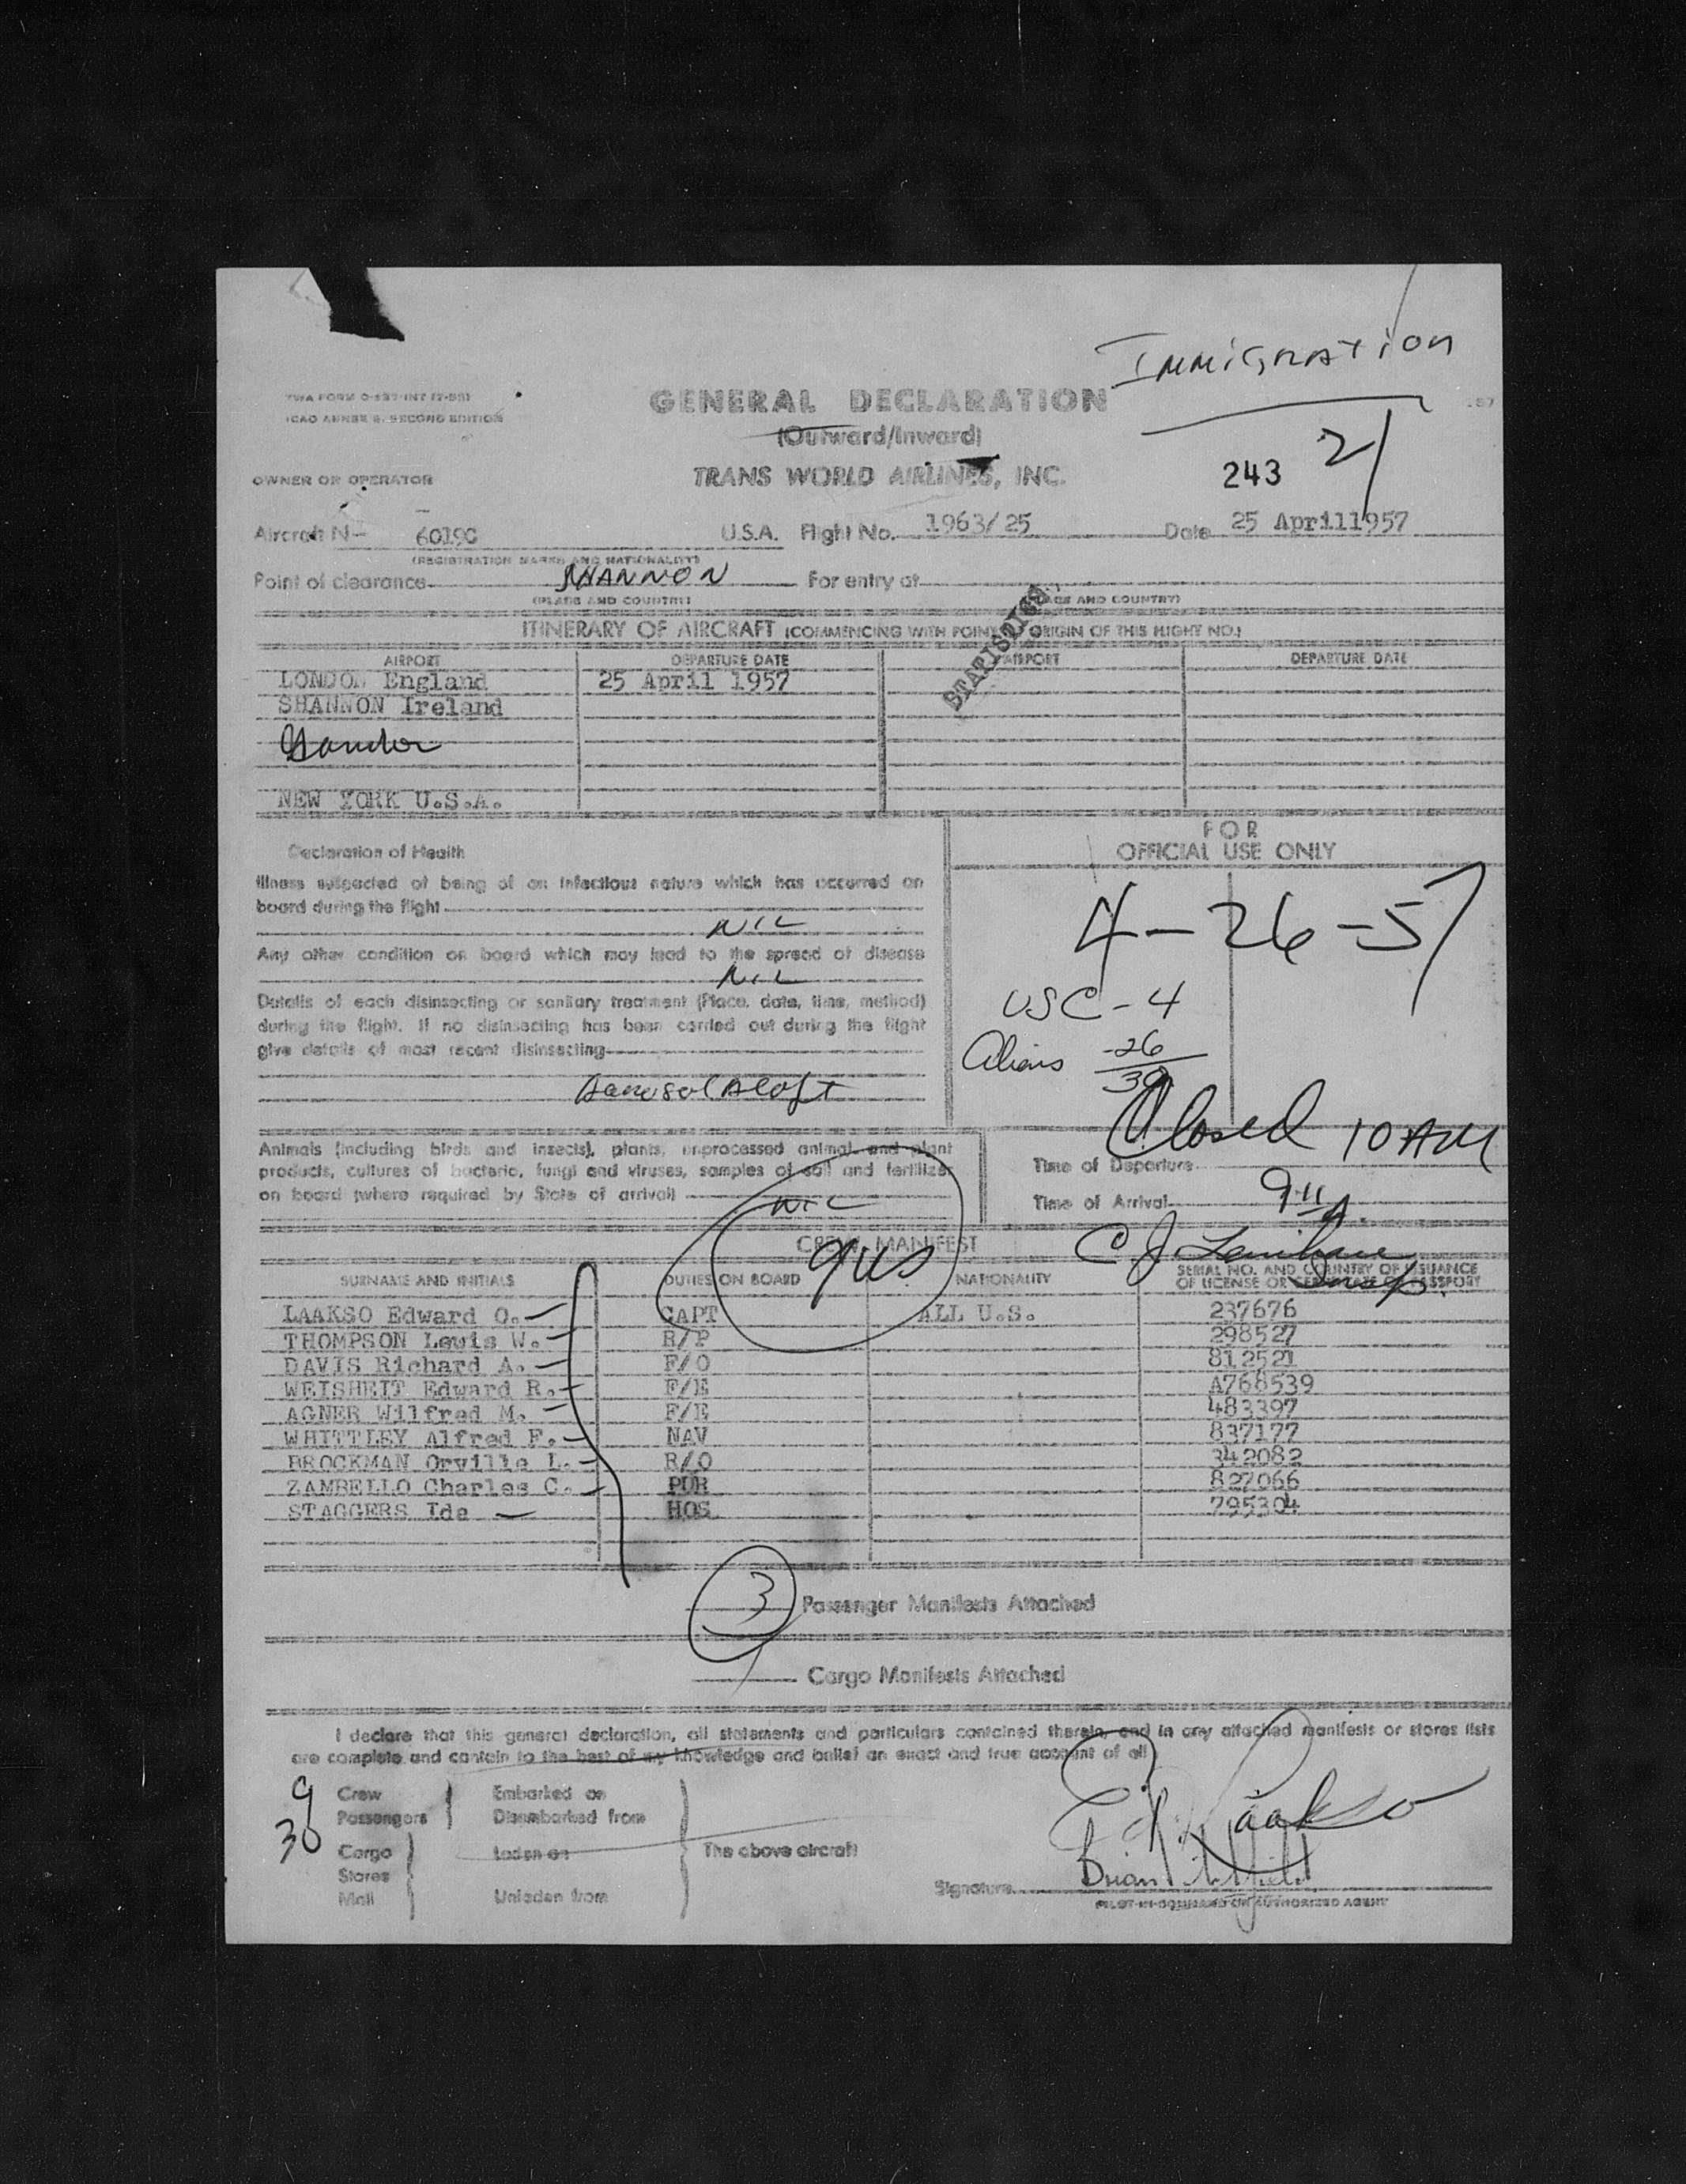 Immigration
TWA FORM O-137-INT (7-55)
ICAO ANNEX 9, SECOND EDITION
GENERAL DECLARATION
(Outward/Inward)
21
243
OWNER OR OPERATOR
TRANS WORLD AIRLINES, INC.
Aircraft N- 6019C U.S.A. Flight No. 1963/25 Date 25 April1957
(REGISTRATION MARKS AND NATIONALITY)
Point of clearance SHANNON For entry at
(PLACE AND COUNTRY) (PLACE AND COUNTRY)
STATISTICS
ITINERARY OF AIRCRAFT (COMMENCING WITH POINT OF ORIGIN OF THIS FLIGHT NO.)
AIRPORT DEPARTURE DATE AIRPORT DEPARTURE DATE
LONDON England 25 April 1957
SHANNON Ireland
Gander
NEW YORK U.S.A.
FOR
OFFICIAL USE ONLY
Declaration of Health
Illness suspected of being of an infectious nature which has occurred on
board during the flight
NIL
Any other condition on board which may lead to the spread of disease
NIL
Details of each disinsecting or sanitary treatment (Place, date, time, method)
during the flight. If no disinsecting has been carried out during the flight
give details of most recent disinsecting
Aerosol Aloft
4-26-57
USC - 4
Aliens -26
30
Closed 10 AM
Animals (including birds and insects), plants, unprocessed animal and plant
products, cultures of bacteria, fungi and viruses, samples of soil and fertilizer
on board (where required by State of arrival)
NIL
Time of Departure
Time of Arrival 9 11 A.
C J Lenihan
Insp.
CREW MANIFEST
9 US
SURNAME AND INITIALS DUTIES ON BOARD NATIONALITY SERIAL NO. AND COUNTRY OF ISSUANCE
OF LICENSE OR CERTIFICATE OR PASSPORT
LAAKSO Edward O. CAPT ALL U.S. 237676
THOMPSON Lewis W. R/P 298527
DAVIS Richard A. F/O 812521
WEISHEIT Edward R. F/E A768539
AGNER Wilfred M. F/E 483397
WHITTLEY Alfred F. NAV 837177
BROCKMAN Orville L. R/O 342082
ZAMBELLO Charles C. PUR 827066
STAGGERS Ida HOS 795304
3 Passenger Manifests Attached
Cargo Manifests Attached
I declare that this general declaration, all statements and particulars contained therein, and in any attached manifests or stores lists
are complete and contain to the best of my knowledge and belief an exact and true account of all
9 Crew Embarked on
30 Passengers Disembarked from
Cargo Laden on The above aircraft
Stores
Mail Unladen from
E O Laakso
Brian
Signature
PILOT-IN-COMMAND OR AUTHORIZED AGENT